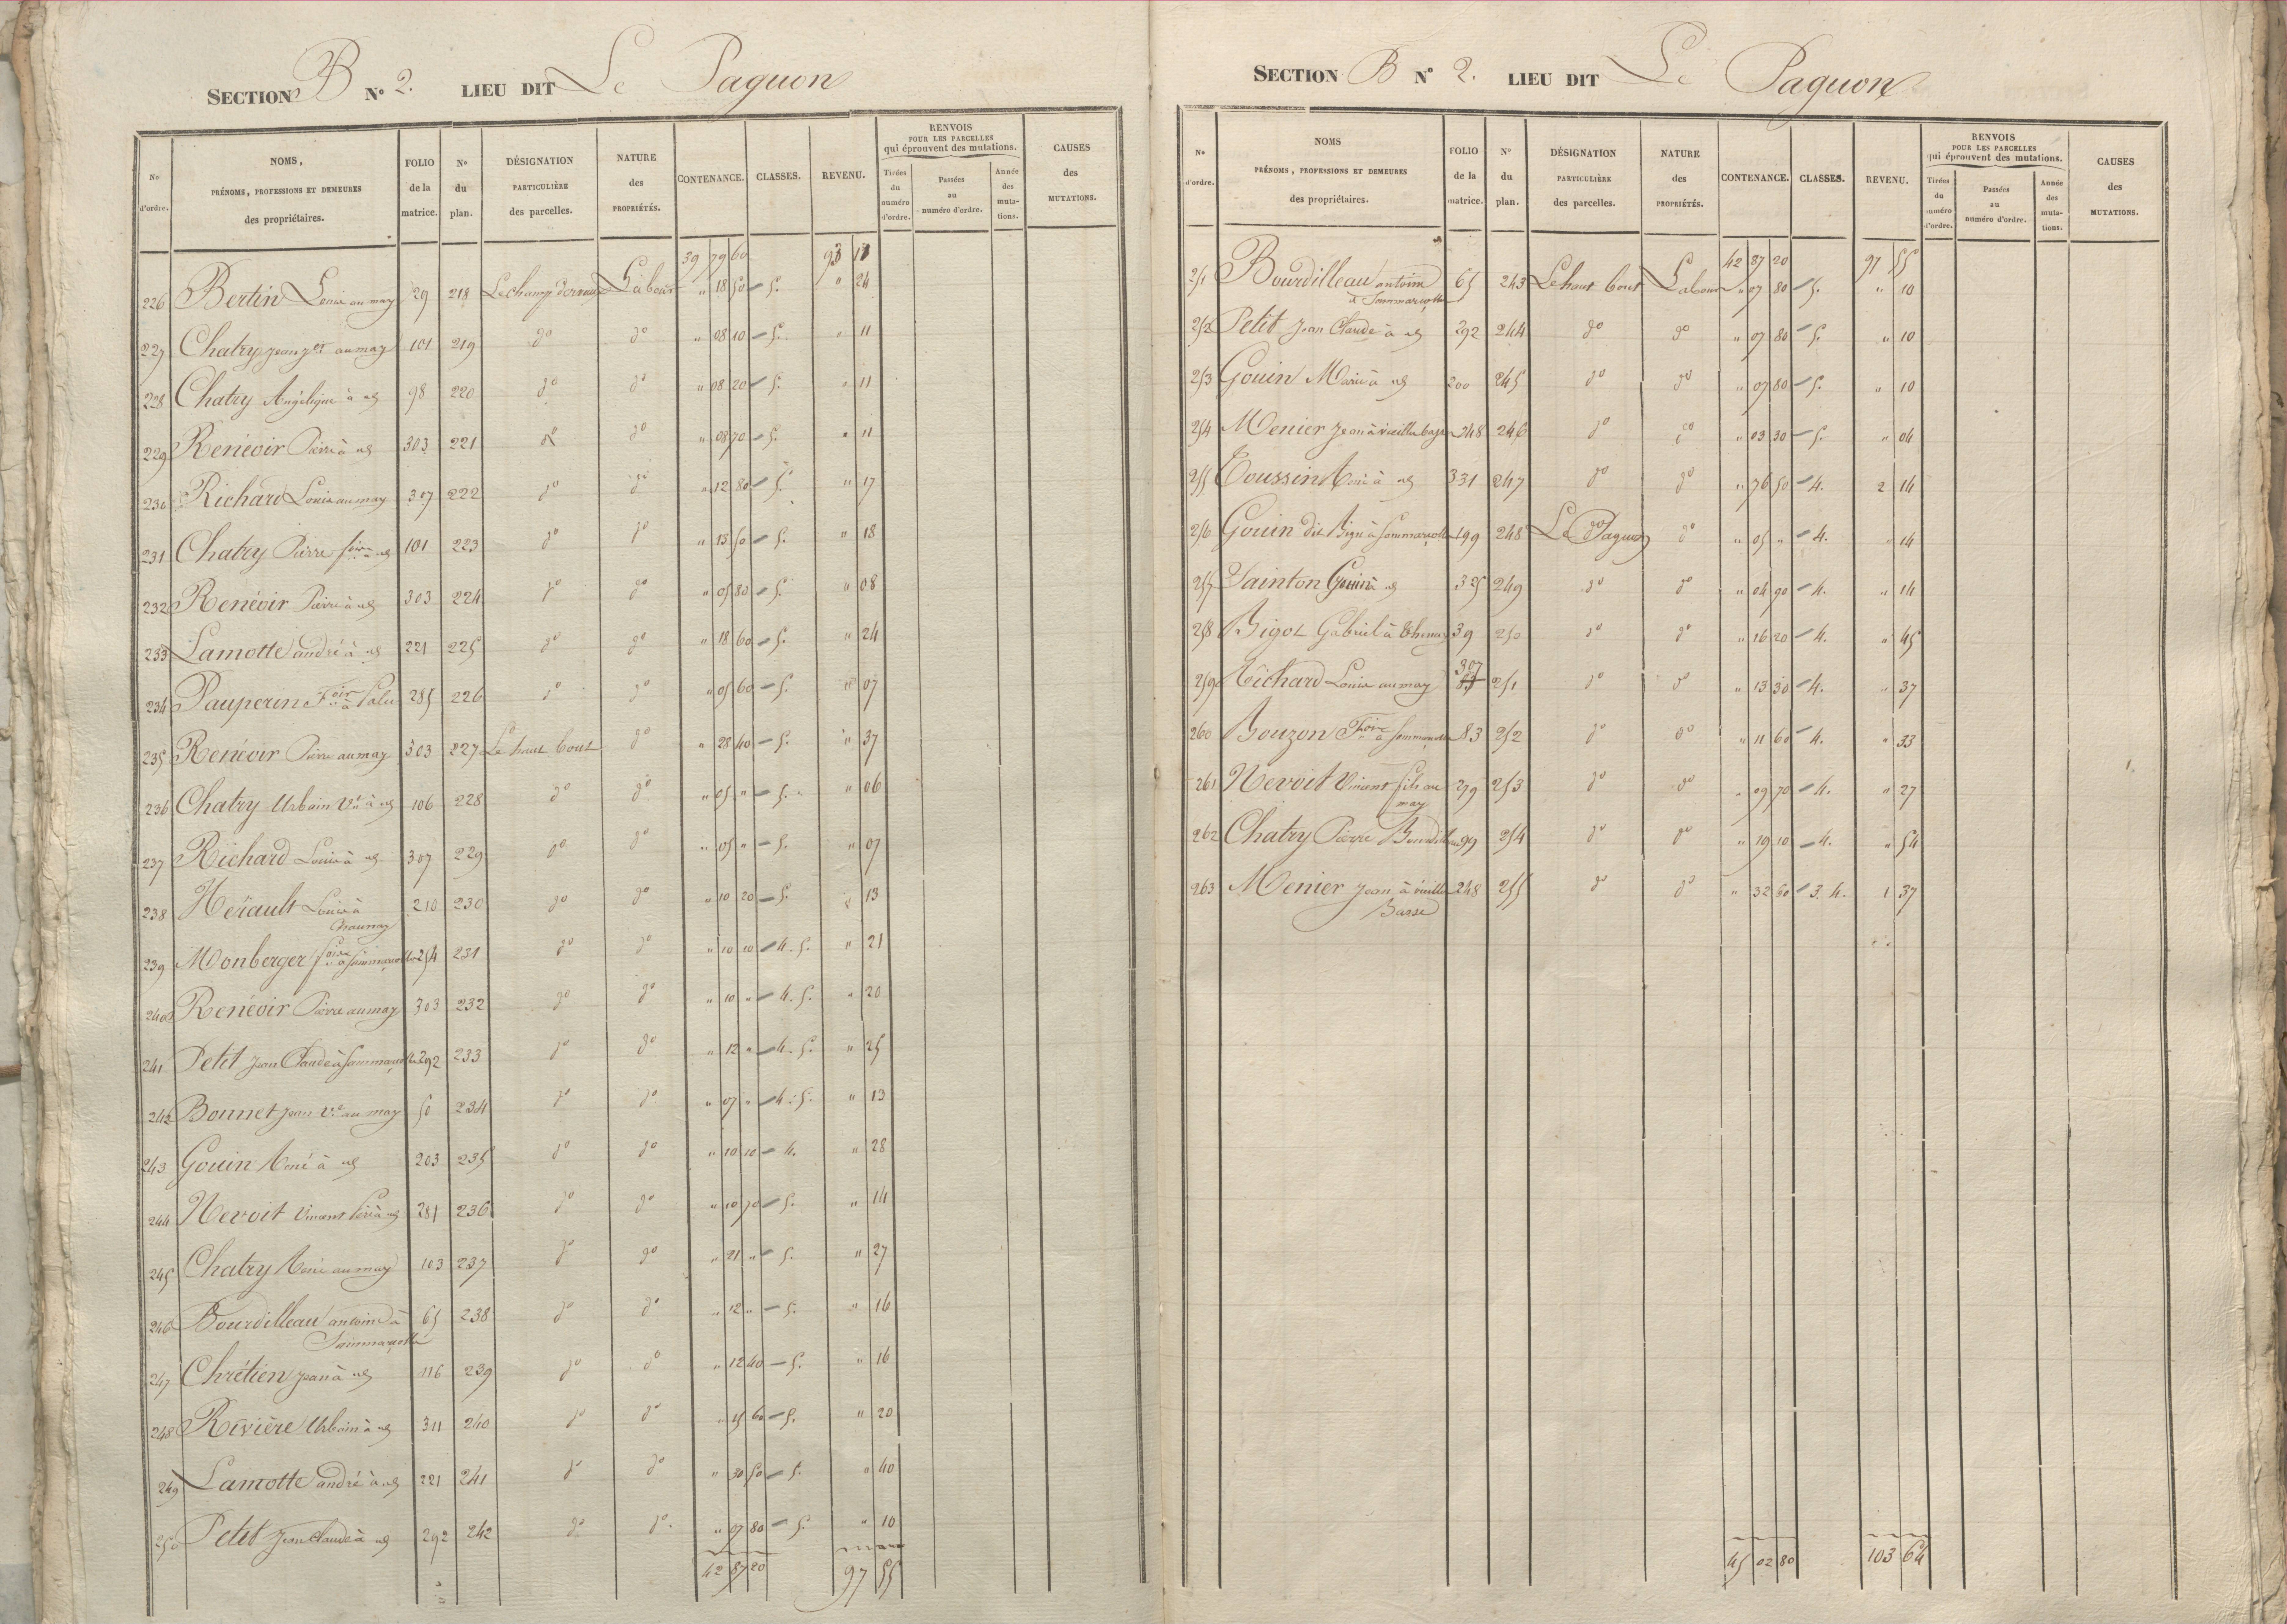 SECTION B N° 2. LIEU DIT Le Paguon
N° d'ordre. NOMS, PRÉNOMS, PROFESSIONS ET DEMEURES des propriétaires. FOLIO de la matrice. N° du plan. DÉSIGNATION PARTICULIÈRE des parcelles. NATURE des PROPRIÉTÉS. CONTENANCE. CLASSES. REVENU. RENVOIS POUR LES PARCELLES qui éprouvent des mutations. Tirées du numéro d'ordre. Passées au numéro d'ordre. Année des mutations. CAUSES des MUTATIONS.
39 79 60 93 18
226 Bertin Louis au may 29 218 Le champ Labour " 18 50 5. " 24
227 Chatry Jean au may 101 219 do do " 08 10 5. " 11
228 Chatry Angélique à 98 220 do do " 08 20 5. " 11
229 Renéoir Pierre à 303 221 do do " 08 70 5. " 11
230 Richard Louis au may 307 222 do do " 12 80 5. " 17
231 Chatry Pierre 101 223 do do " 13 50 5. " 18
232 Renéoir Pierre à 303 224 do do " 05 80 5. " 08
233 Lamotte andré à 221 225 do do " 18 60 5. " 24
234 Pauperin Foix à 285 226 do do " 05 60 5. " 07
235 Renéoir Pierre au may 303 227 Le haut bout do " 28 40 5. " 37
236 Chatry Urbain Ve à 106 228 do do " 05 " 5. " 06
237 Richard Louis à 307 229 do do " 05 " 5. " 07
238 Hérault Louis à 210 230 do do " 10 20 5. " 13
Chaunay
239 Monberger foix à Sammarcolle 254 231 do do " 10 10 4. 5. " 21
240 Renéoir Pierre au may 303 232 do do " 10 " 4. 5. " 20
241 Petit Jean Claude à Sammarcolle 292 233 do do " 12 " 4. 5. " 25
242 Bonnet Jean Ve au may 50 234 do do " 07 " 4. 5. " 13
243 Gouin René à 203 235 do do " 10 10 4. " 28
244 Nevoit Vincent Père à 281 236 do do " 10 70 5. " 14
245 Chatry René au may 103 237 do do " 21 " 5. " 27
246 Bourdilleau antoine à 65 238 do do " 12 " 5. " 16
Sammarcolle
247 Chrétien Jean à 116 239 do do " 12 40 5. " 16
248 Rivière Urbain à 311 240 do do " 15 60 5. " 20
249 Lamotte andré à 221 241 do do " 30 50 5. " 40
250 Petit Jean Claude à 292 242 do do " 07 80 5. " 10
42 87 20 97 55
SECTION B N° 2. LIEU DIT Le Paguon
N° d'ordre. NOMS PRÉNOMS, PROFESSIONS ET DEMEURES des propriétaires. FOLIO de la matrice. N° du plan. DÉSIGNATION PARTICULIÈRE des parcelles. NATURE des PROPRIÉTÉS. CONTENANCE. CLASSES. REVENU. RENVOIS POUR LES PARCELLES qui éprouvent des mutations. Tirées du numéro d'ordre. Passées au numéro d'ordre. Année des mutations. CAUSES des MUTATIONS.
42 87 20 97 55
251 Bourdilleau antoine 65 243 Le haut bout Labour " 07 80 5. " 10
à Sammarcolle
252 Petit Jean Claude à 292 244 do do " 07 80 5. " 10
253 Gouin Marie à 200 245 do do " 07 80 5. " 10
254 Menier Jean à vieille basse 248 246 do do " 03 30 5. " 04
255 Toussin René à 331 247 do do " 76 50 4. 2 14
256 Gouin dit Bigu à Sammarcolle 199 248 Le Paguon do " 05 " 4. " 14
257 Sainton Gouin à 325 249 do do " 04 90 4. " 14
258 Bigot Gabriel à 39 250 do do " 16 20 4. " 45
259 Richard Louis au may 307 251 do do " 13 30 4. " 37
260 Bouzon Foix à Sammarcolle 83 252 do do " 11 60 4. " 33
261 Nevoit Vincent fils au 279 253 do do " 09 70 4. " 27
may
262 Chatry Pierre Bourdilleau 99 254 do do " 19 10 4. " 54
263 Menier Jean à vieille 248 255 do do " 32 60 3. 4. 1 37
Basse
45 02 80 103 64